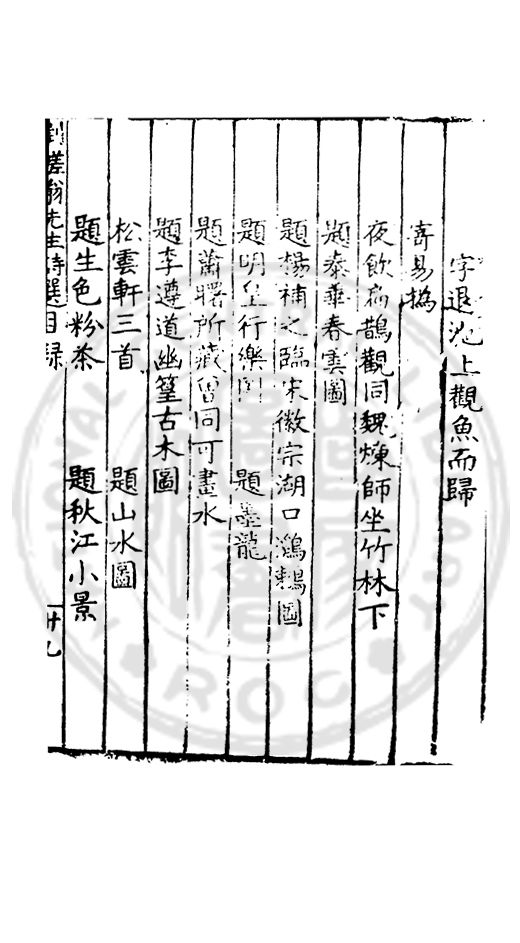 字退池上觀魚而歸
寄易撝
夜飲扁鵲觀同魏煉師坐竹林下
題泰華春雲圖
題楊補之臨宋徽宗湖口鸂鶒圖
題明皇行樂圖 題墨龍
題蕭曙所藏曾同可畫水
題李遵道幽篁古木圖
松雲軒三首 題山水圖
題生色粉茶 題秋江小景
差翁先生詩選目録 卄九